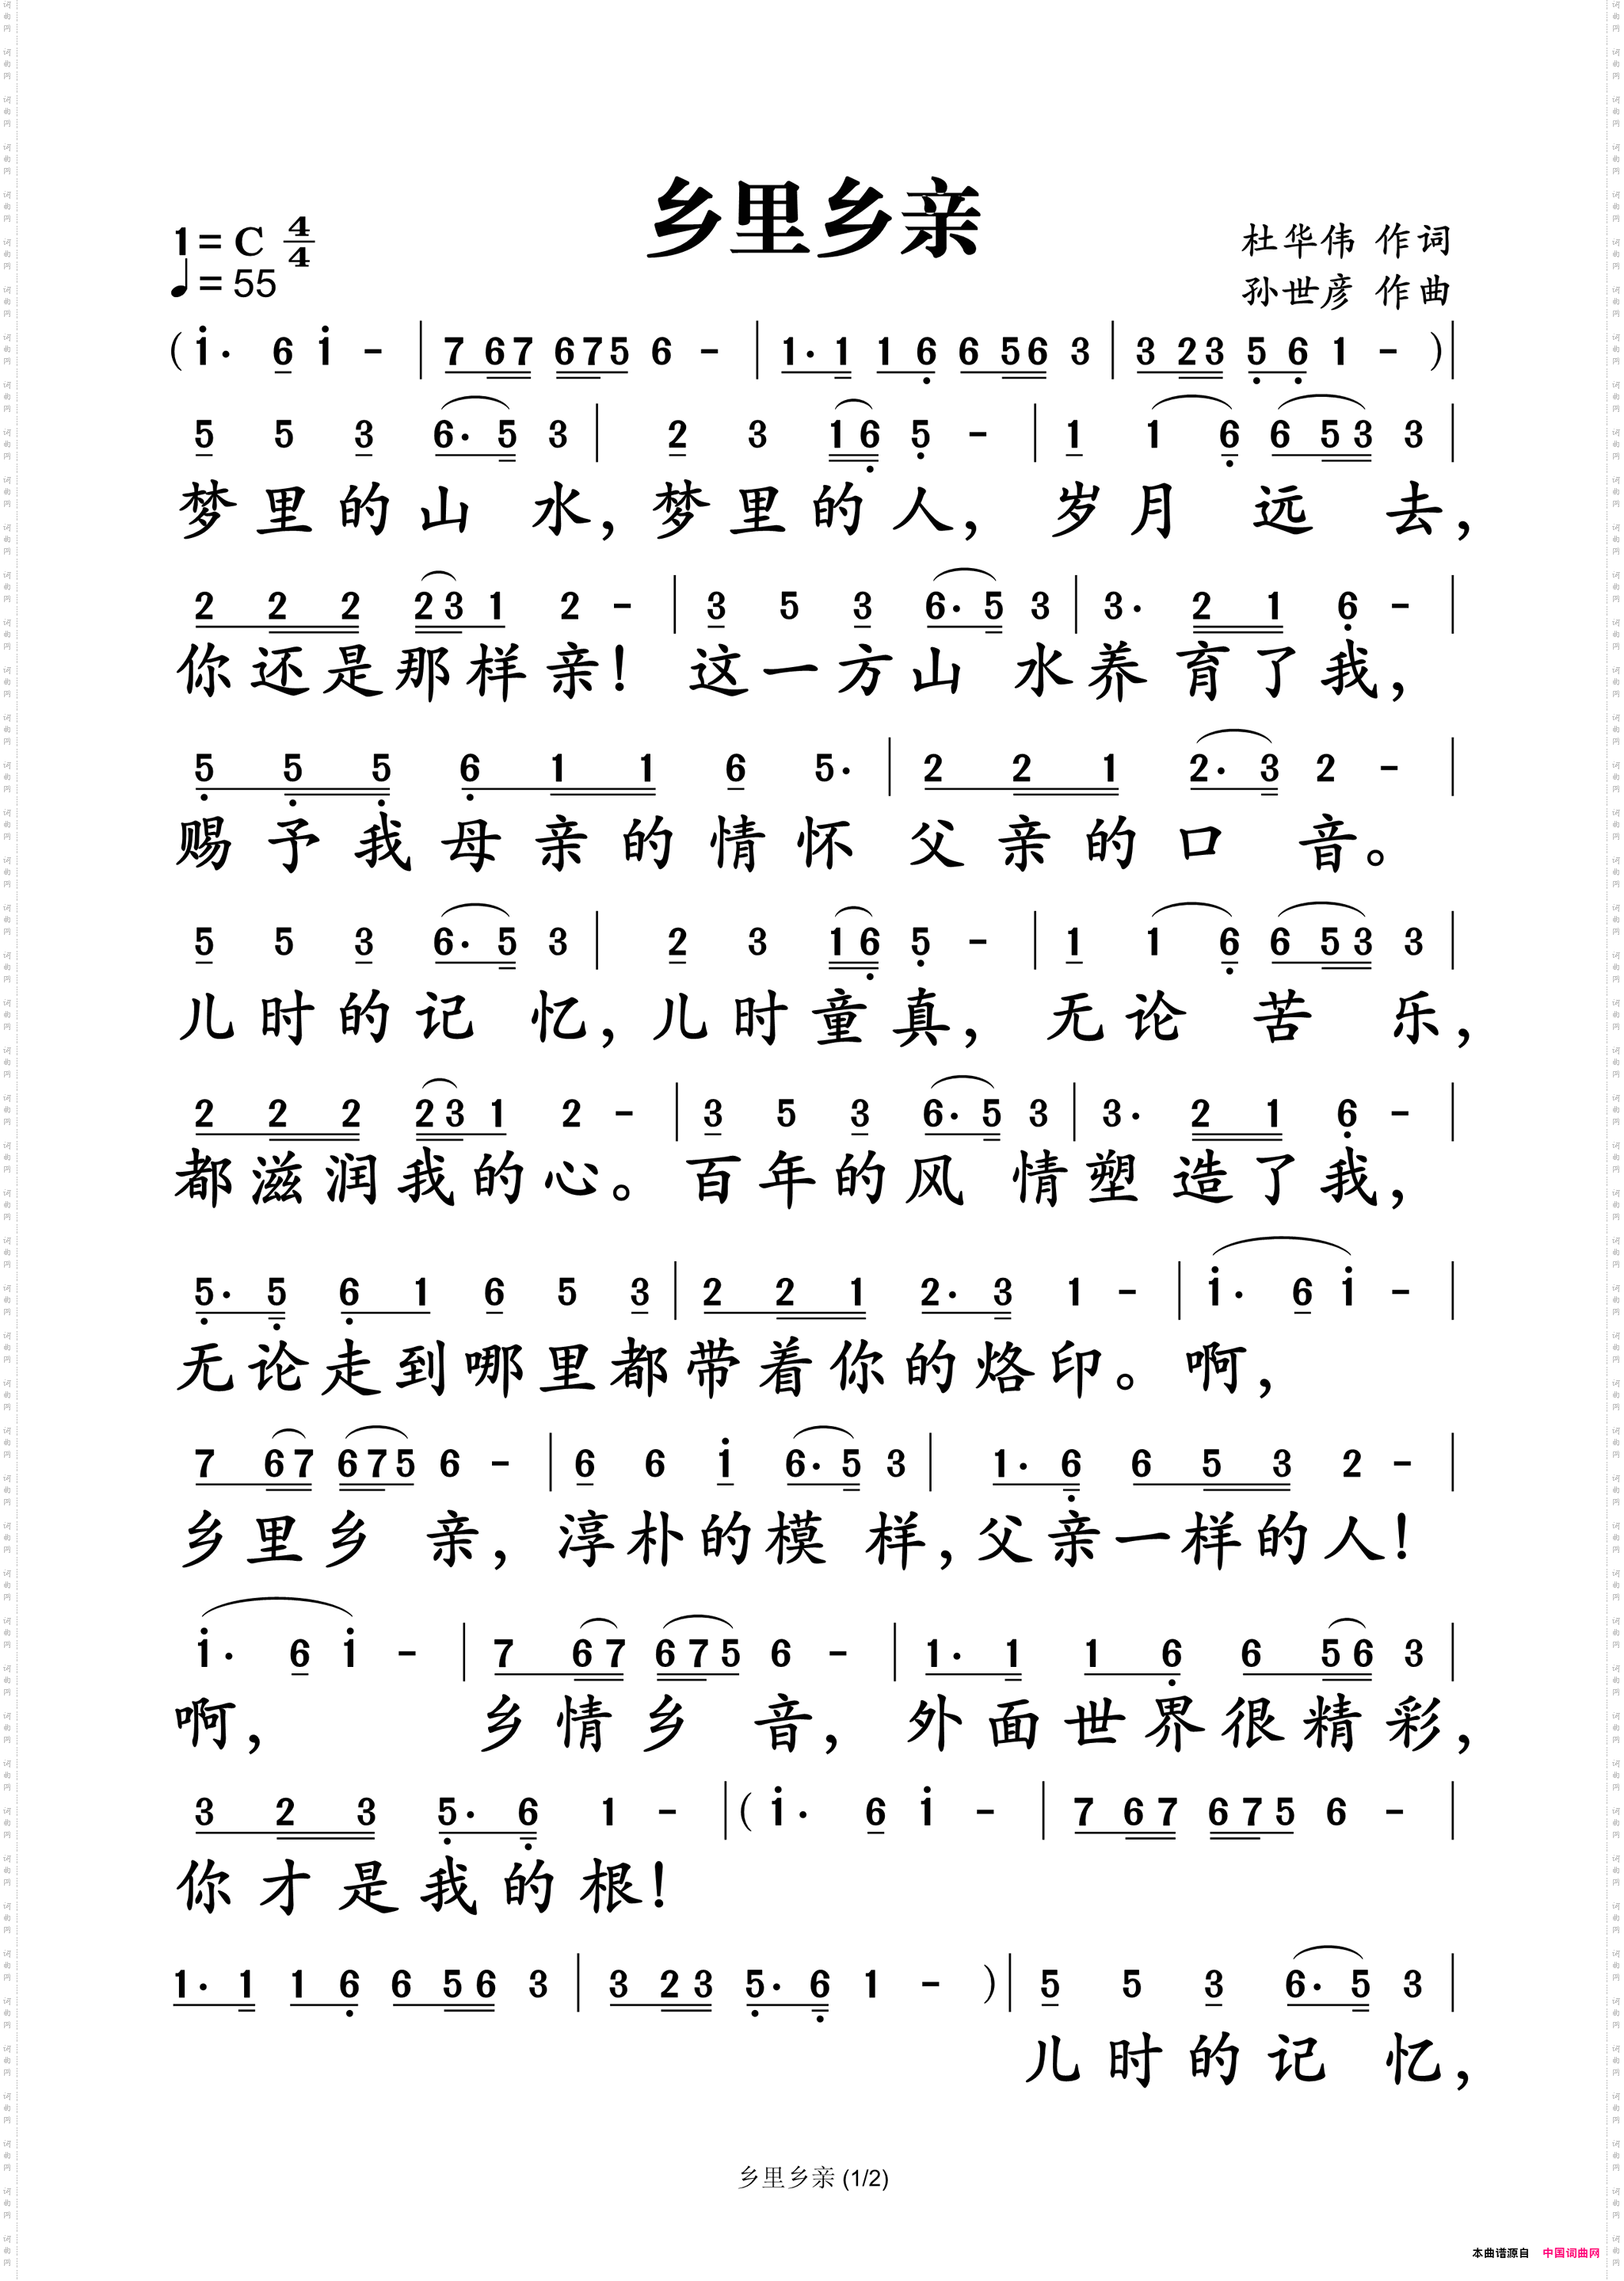 乡里乡亲
1=C 4/4
♩=55
杜华伟 作词
孙世彦 作曲
(i· 6 i - | 7 67 675 6 - | 1· 1 1 6 6 56 3 | 3 23 5 6 1 - )|
5 5 3 6· 5 3 | 2 3 16 5 - | 1 1 6 6 53 3 |
梦里的山 水,梦里的人, 岁月 远 去,
2 2 2 23 1 2 - | 3 5 3 6· 5 3 | 3· 2 1 6 - |
你还是那样亲! 这一方山 水养育了我,
5 5 5 6 1 1 6 5· | 2 2 1 2· 3 2 - |
赐予我母亲的情怀父亲的口 音。
5 5 3 6· 5 3 | 2 3 16 5 - | 1 1 6 6 53 3 |
儿时的记 忆,儿时童真, 无论 苦 乐,
2 2 2 23 1 2 - | 3 5 3 6· 5 3 | 3· 2 1 6 - |
都滋润我的心。百年的风 情塑造了我,
5· 5 6 1 6 5 3 | 2 2 1 2· 3 1 - | i· 6 i - |
无论走到哪里都带着你的烙印。啊,
7 67 675 6 - | 6 6 i 6· 5 3 | 1· 6 6 5 3 2 - |
乡里乡 亲,淳朴的模 样,父亲一样的人!
i· 6 i - | 7 67 675 6 - | 1· 1 1 6 6 56 3 |
啊, 乡情乡 音, 外面世界很精彩,
3 2 3 5· 6 1 - |(i· 6 i - | 7 67 675 6 - |
你才是我的根!
1· 1 1 6 6 56 3 | 3 23 5· 6 1 - )| 5 5 3 6· 5 3 |
儿时的记 忆,
乡里乡亲 (1/2)
本曲谱源自 中国词曲网